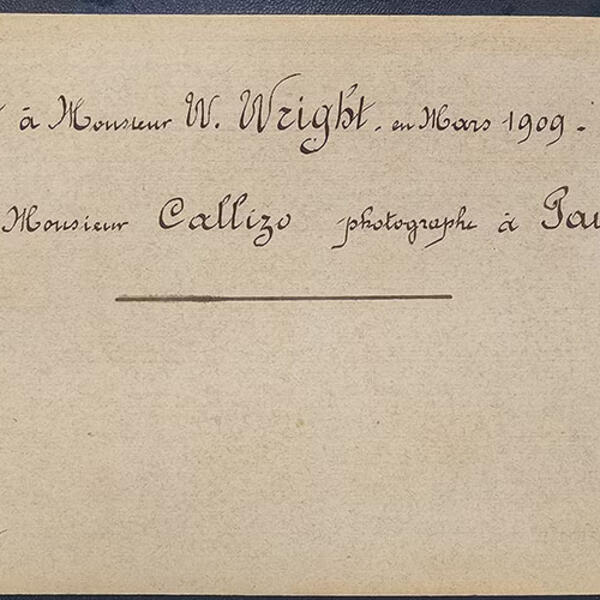 à Monsieur W. Wright, en Mars 1909.
Monsieur Callizo photographe à Pau